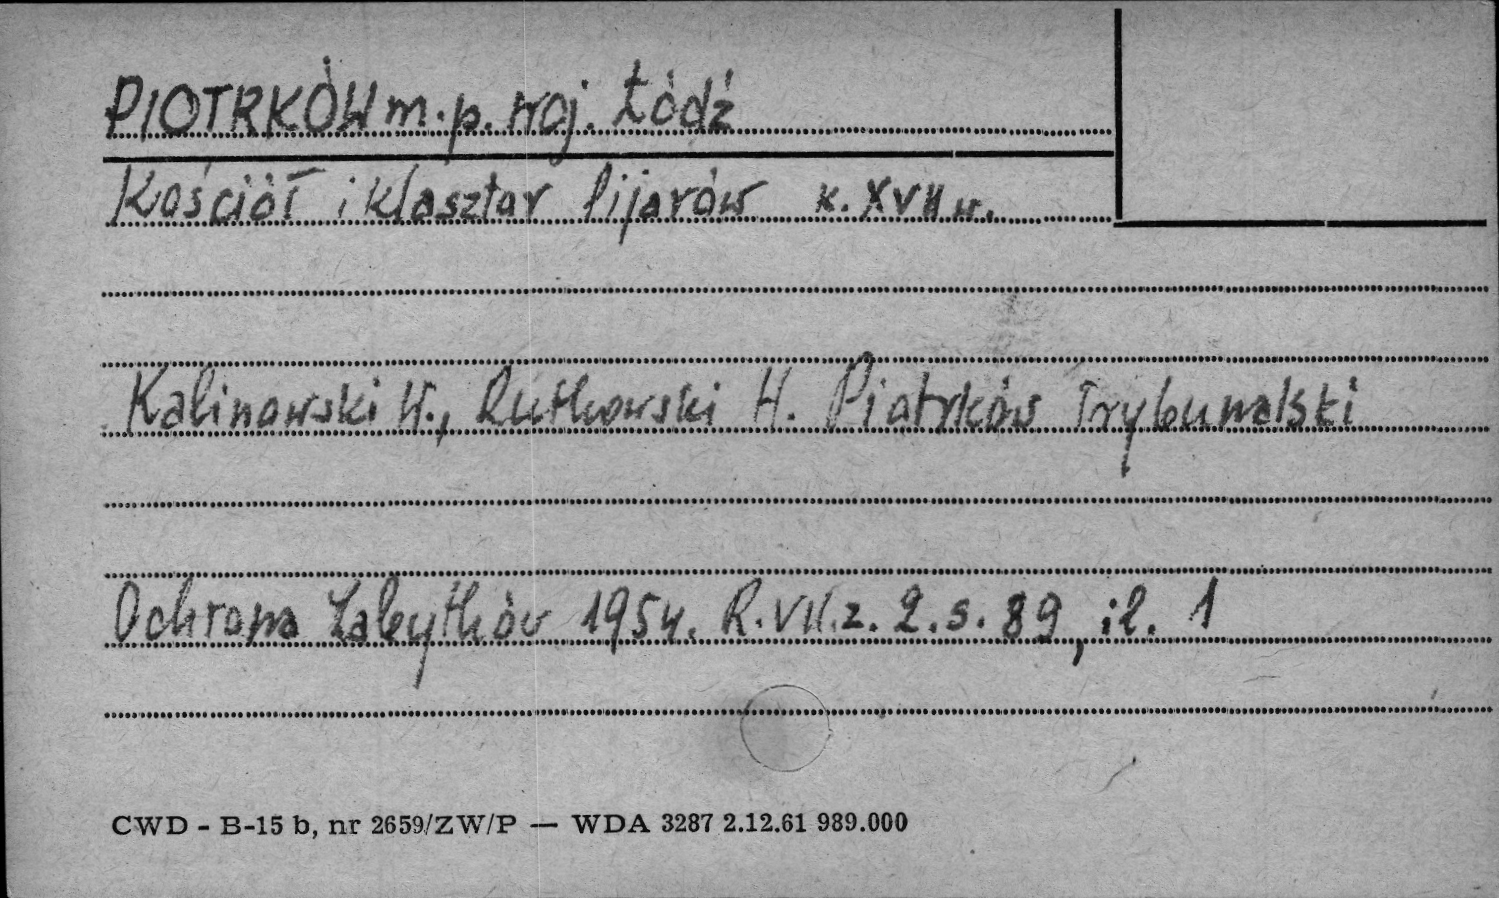 PIOTRKÓW m. p. woj. Łódź
Kościół i klasztor Pijarów k. XVII w.
Kalinowski W., Rutkowski H. Piotrków Trybunalski
Ochrona Zabytków 1954. R. VII. z. 2. s. 89, il. 1
CWD - B-15 b, nr 2659/ZW/P — WDA 3287 2.12.61 989.000